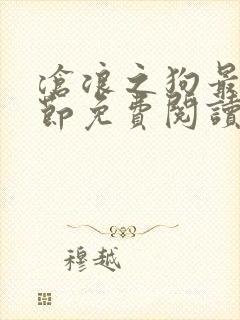 滄浪之狗最
節免費閱讀
穆越